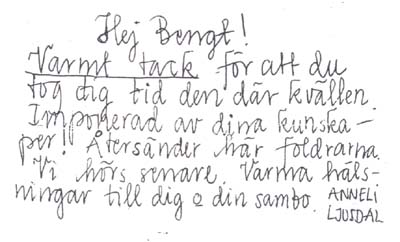 Hej Bengt!
Varmt tack för att du
tog dig tid den där kvällen.
Imponerad av dina kunska-
per! Återsänder här foldrarna.
Vi hörs senare. Varma häls-
ningar till dig o din sambo. ANNELI
LJUSDAL